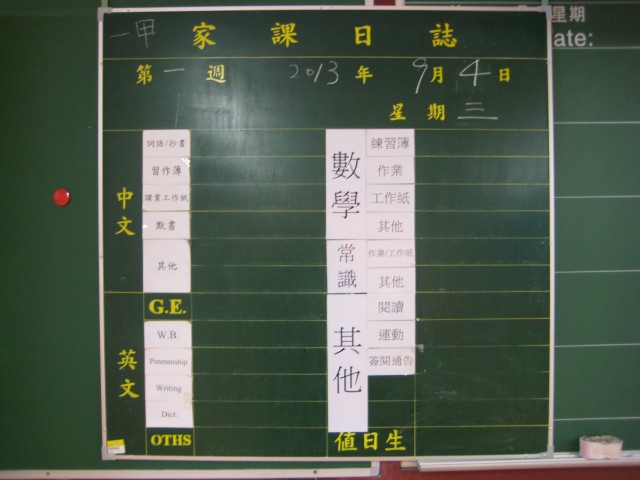 一甲 家課日誌
第一週 2013年 9月4日
星期三
中文
詞語/抄書
習作簿
課業工作紙
默書
其他
英文
G.E.
W.B.
Penmanship
Writing
Dict.
OTHS
數學
練習簿
作業
工作紙
其他
常識
作業/工作紙
其他
其他
閱讀
運動
簽閱通告
值日生
星期
ate: